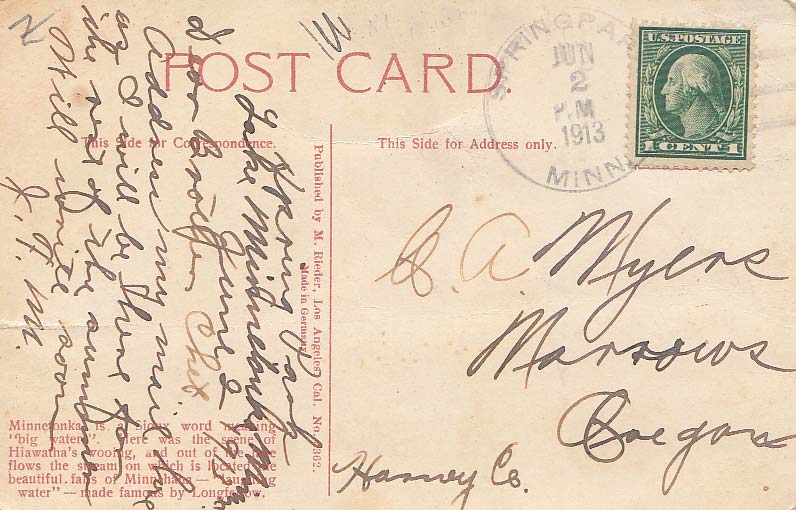 POST CARD.
This Side for Correspondence.
This Side for Address only.
SPRINGPARK
JUN
2
P.M
1913
MINN
U.S. POSTAGE
1 CENT 1
Spring Park
Lake Minnetonka Minn
June 2
Dear Brother Chet
Address my mail here
as I will be here for
the rest of the summer
Will write soon
J. F. M.
Published by M. Rieder, Los Angeles, Cal. No. 362.
Made in Germany
C. A. Myers
Marrows
Oregon
Harney Co.
Minnetonka is a Sioux word meaning
"big water". Here was the scene of
Hiawatha's wooing, and out of the lake
flows the stream on which is located the
beautiful falls of Minnehaha — "laughing
water" — made famous by Longfellow.